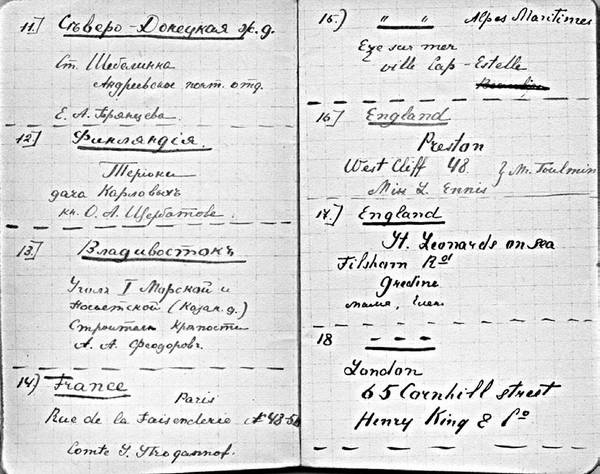 11.) Сѣверо-Донецкая ж.д.
Ст. Шебелинка
Андреевское почт. отд.
Е. А. Брянцева.
12.) Финляндія.
Теріоки
дача Карловыхъ
кн. О. А. Щербатова.
13.) Владивостокъ
Уголъ I Морской и
Посьетской (Казан. д.)
Строителю Крѣпости
А. А. Ѳеодоровъ.
14.) France
Paris
Rue de la Faisenderie № 48-50
Comte S. Strogannof.
15.) " " Alpes Maritimes
Eze sur mer
ville Cap-Estelle
16.) England
Preston
West Cliff 48. } Mr. Toulmin
Miss L. Ennis
17.) England
St. Leonards on sea
Filsham Rd
Gredine
мама,
18 - - -
London
65 Cornhill street
Henry King & Co